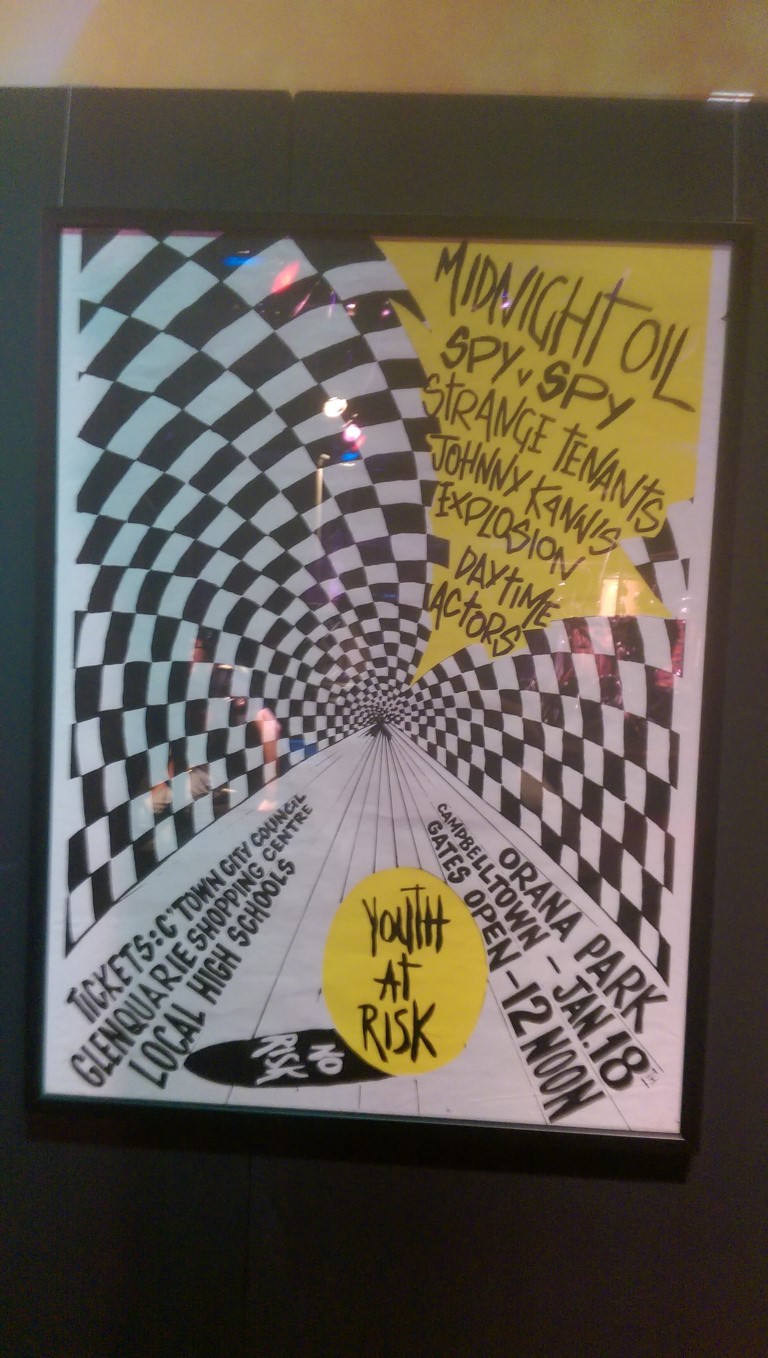 MIDNIGHT OIL
SPY V SPY
STRANGE TENANTS
JOHNNY KANNIS
EXPLOSION
DAYTIME
ACTORS
TICKETS: C'TOWN CITY COUNCIL
GLENQUARIE SHOPPING CENTRE
LOCAL HIGH SCHOOLS
YOUTH
AT
RISK
NO
RISK
ORANA PARK
CAMPBELLTOWN - JAN. 18
GATES OPEN - 12 NOON